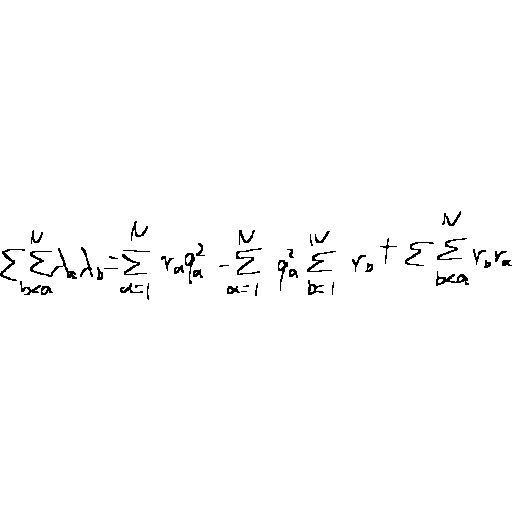 \sum \sum_{b<a}^{N} \lambda_a \lambda_b = \sum_{a=1}^{N} r_a q_a^2 - \sum_{a=1}^{N} q_a^2 \sum_{b=1}^{N} r_b + \sum \sum_{b<a}^{N} r_b r_a